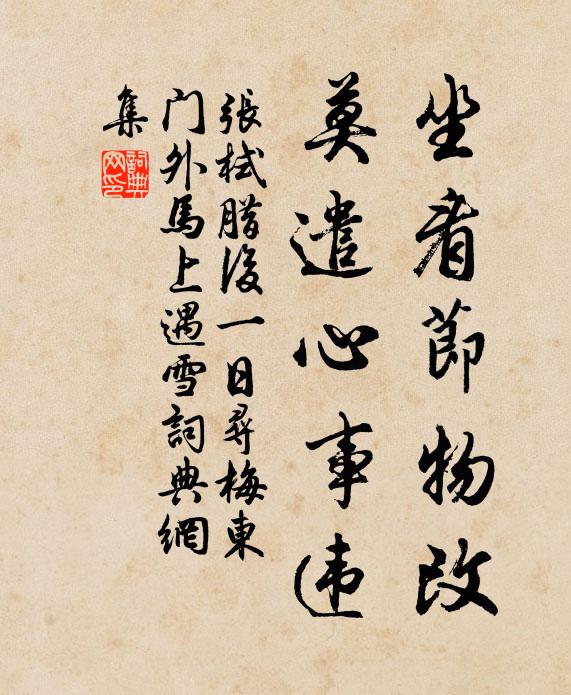 坐看節物改
莫遣心事违
張栻腊後一日尋梅東
门外馬上遇雪詞典網
集
詞典网印